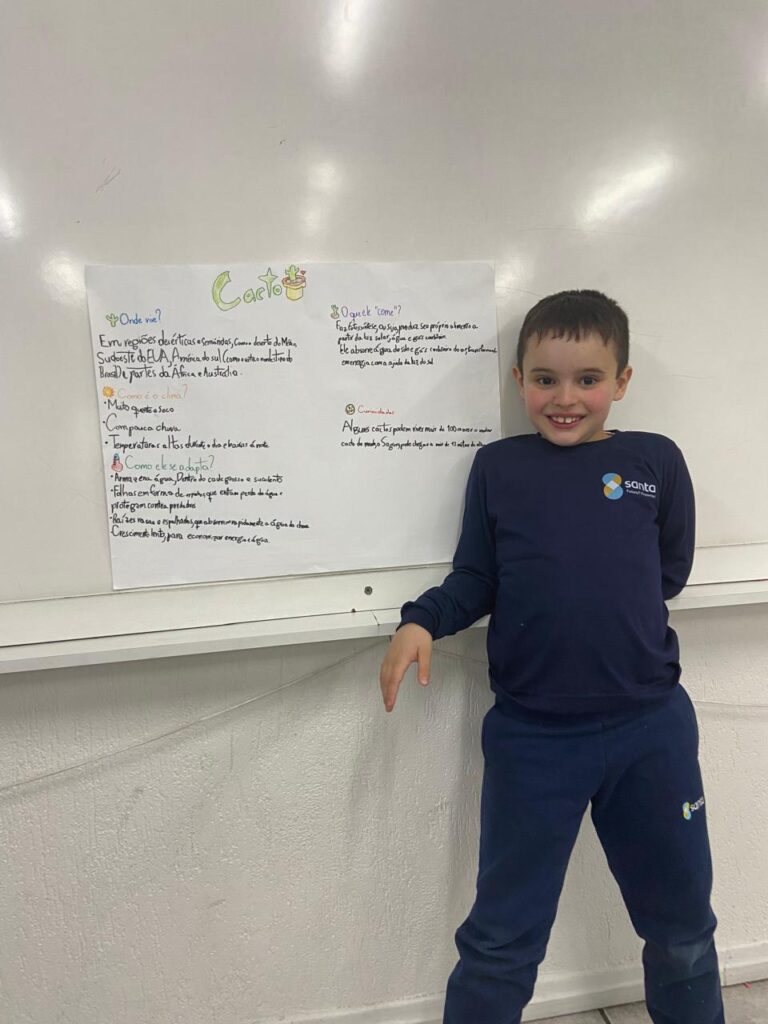 Cacto
Onde vive?
Em regiões desérticas e semiáridas, como o deserto do
Sudoeste do EUA, América do sul (como o nordeste do
Brasil) e partes da África e Austrália.
Como é o clima?
• Muito quente e seco
• Com pouca chuva
• Temperaturas altas durante o dia e baixas à noite
Como ele se adapta?
• Armazena água, Dentro do caule grosso e suculento
• Folhas em forma de espinhos, que evitam perda de água e
protegem contra predadores
• Raízes rasas e espalhadas, que absorvem rapidamente a água da chuva
Crescimento lento, para economizar energia e água.
O que ele "come"?
Faz fotossíntese, ou seja, produz seu próprio alimento a
partir da luz solar, água e gás carbônico
Ele absorve água do solo e gás carbônico do ar, transformando
em energia com a ajuda da luz do sol
Curiosidades
Alguns cactos podem viver mais de 100 anos e o maior
cacto do mundo, Saguaro, pode chegar a mais de 12 metros de altura
santa
santa